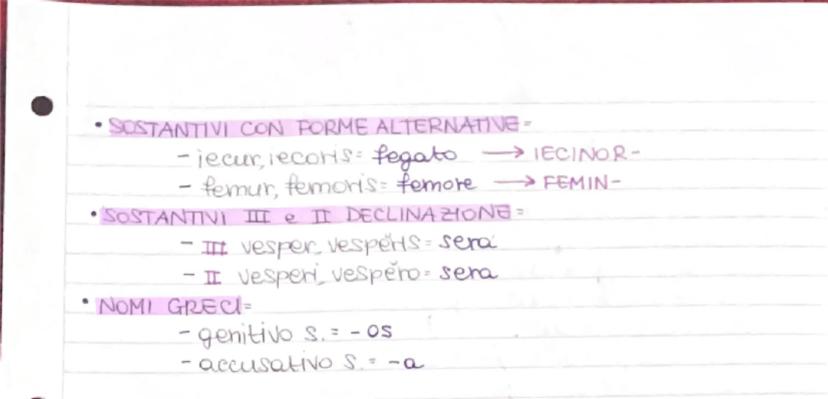 • SOSTANTIVI CON FORME ALTERNATIVE=
- iecur, iecoris= fegato → IECINOR-
- femur, femoris= femore → FEMIN-
• SOSTANTIVI III e II DECLINAZIONE=
- III vesper, vespĕris= sera
- II vesperi, vespĕro= sera
• NOMI GRECI=
- genitivo S.= -os
- accusativo S.= -a